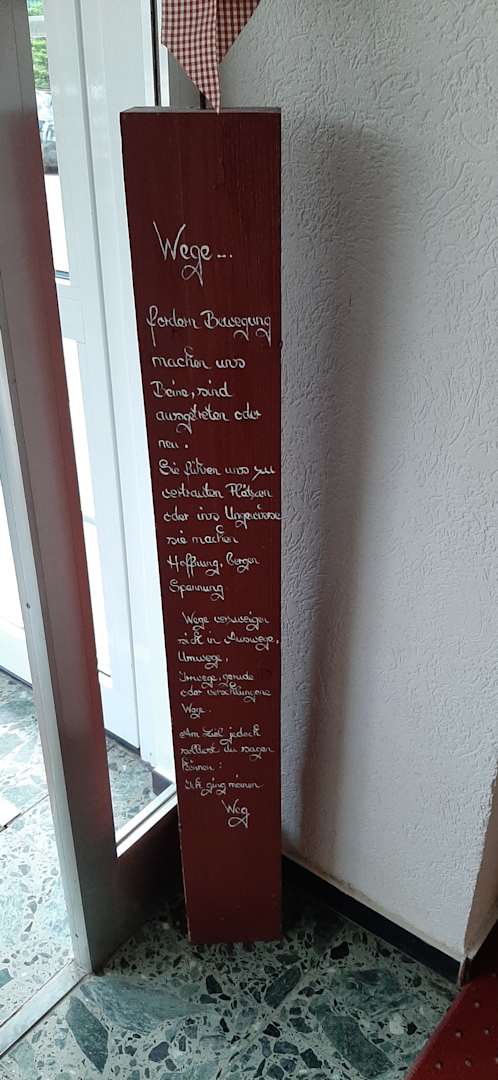 Wege...
fordern Bewegung
machen uns
Beine, sind
ausgetreten oder
neu.
Sie führen uns zu
vertrauten Plätzen
oder ins Ungewisse
sie machen
Hoffnung, bergen
Spannung
Wege verzweigen
sich in Auswege,
Umwege,
Irrwege, gerade
oder verschlungene
Wege.
Am Ziel jedoch
solltest du sagen
können:
ich ging meinen
Weg